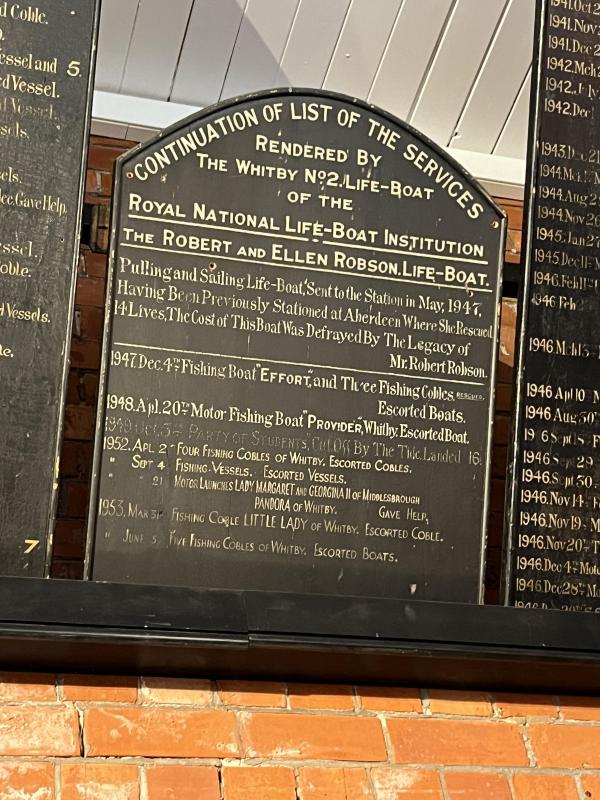 d Coble.
essel and 5.
rd Vessel.
Vessel.
ssels.
sels.
ee. Gave Help.
ssel.
oble.
d Vessels.
ne.
7
CONTINUATION OF LIST OF THE SERVICES
RENDERED BY
THE WHITBY No2. LIFE-BOAT
OF THE
ROYAL NATIONAL LIFE-BOAT INSTITUTION
THE ROBERT AND ELLEN ROBSON. LIFE-BOAT.
Pulling and Sailing Life-Boat, Sent to the Station in May, 1947,
Having Been Previously Stationed at Aberdeen Where She Rescued
14 Lives, The Cost of This Boat Was Defrayed By The Legacy of
Mr. Robert Robson.
1947. Dec. 4TH Fishing Boat "EFFORT", and Three Fishing Cobles, RESCUED.
Escorted Boats.
1948. Apl. 20TH Motor Fishing Boat "PROVIDER", Whitby. Escorted Boat.
1949 Oct. 3RD PARTY OF STUDENTS, Cut Off By The Tide. Landed 16
1952. APL 2 FOUR FISHING COBLES OF WHITBY. ESCORTED COBLES.
" SEPT 4 FISHING-VESSELS. ESCORTED VESSELS.
" " 21 MOTOR LAUNCHES LADY MARGARET AND GEORGINA II OF MIDDLESBROUGH
PANDORA OF WHITBY. GAVE HELP,
1953. MAR 31 FISHING COBLE LITTLE LADY OF WHITBY. ESCORTED COBLE.
" JUNE 5 FIVE FISHING COBLES OF WHITBY. ESCORTED BOATS.
1941. Oct 2
1941. Nov.
1941. Dec 2
1942. Mch
1942. July
1942. Dec
1943. Dec 21
1944. Mch
1944. Aug 2
1944. Nov 26
1945. Jan 27
1945. Dec 11
1946. Feb 11
1946 Feb
1946 Mch 13
1946 Apl 10 M
1946 Aug 30
Sept 18 F
1946 Sept 29
1946. Sept 30
1946. Nov 14 F
1946. Nov 19 M
1946. Nov 20TH T
1946. Dec 4TH Moto
1946. Dec 28TH Mo